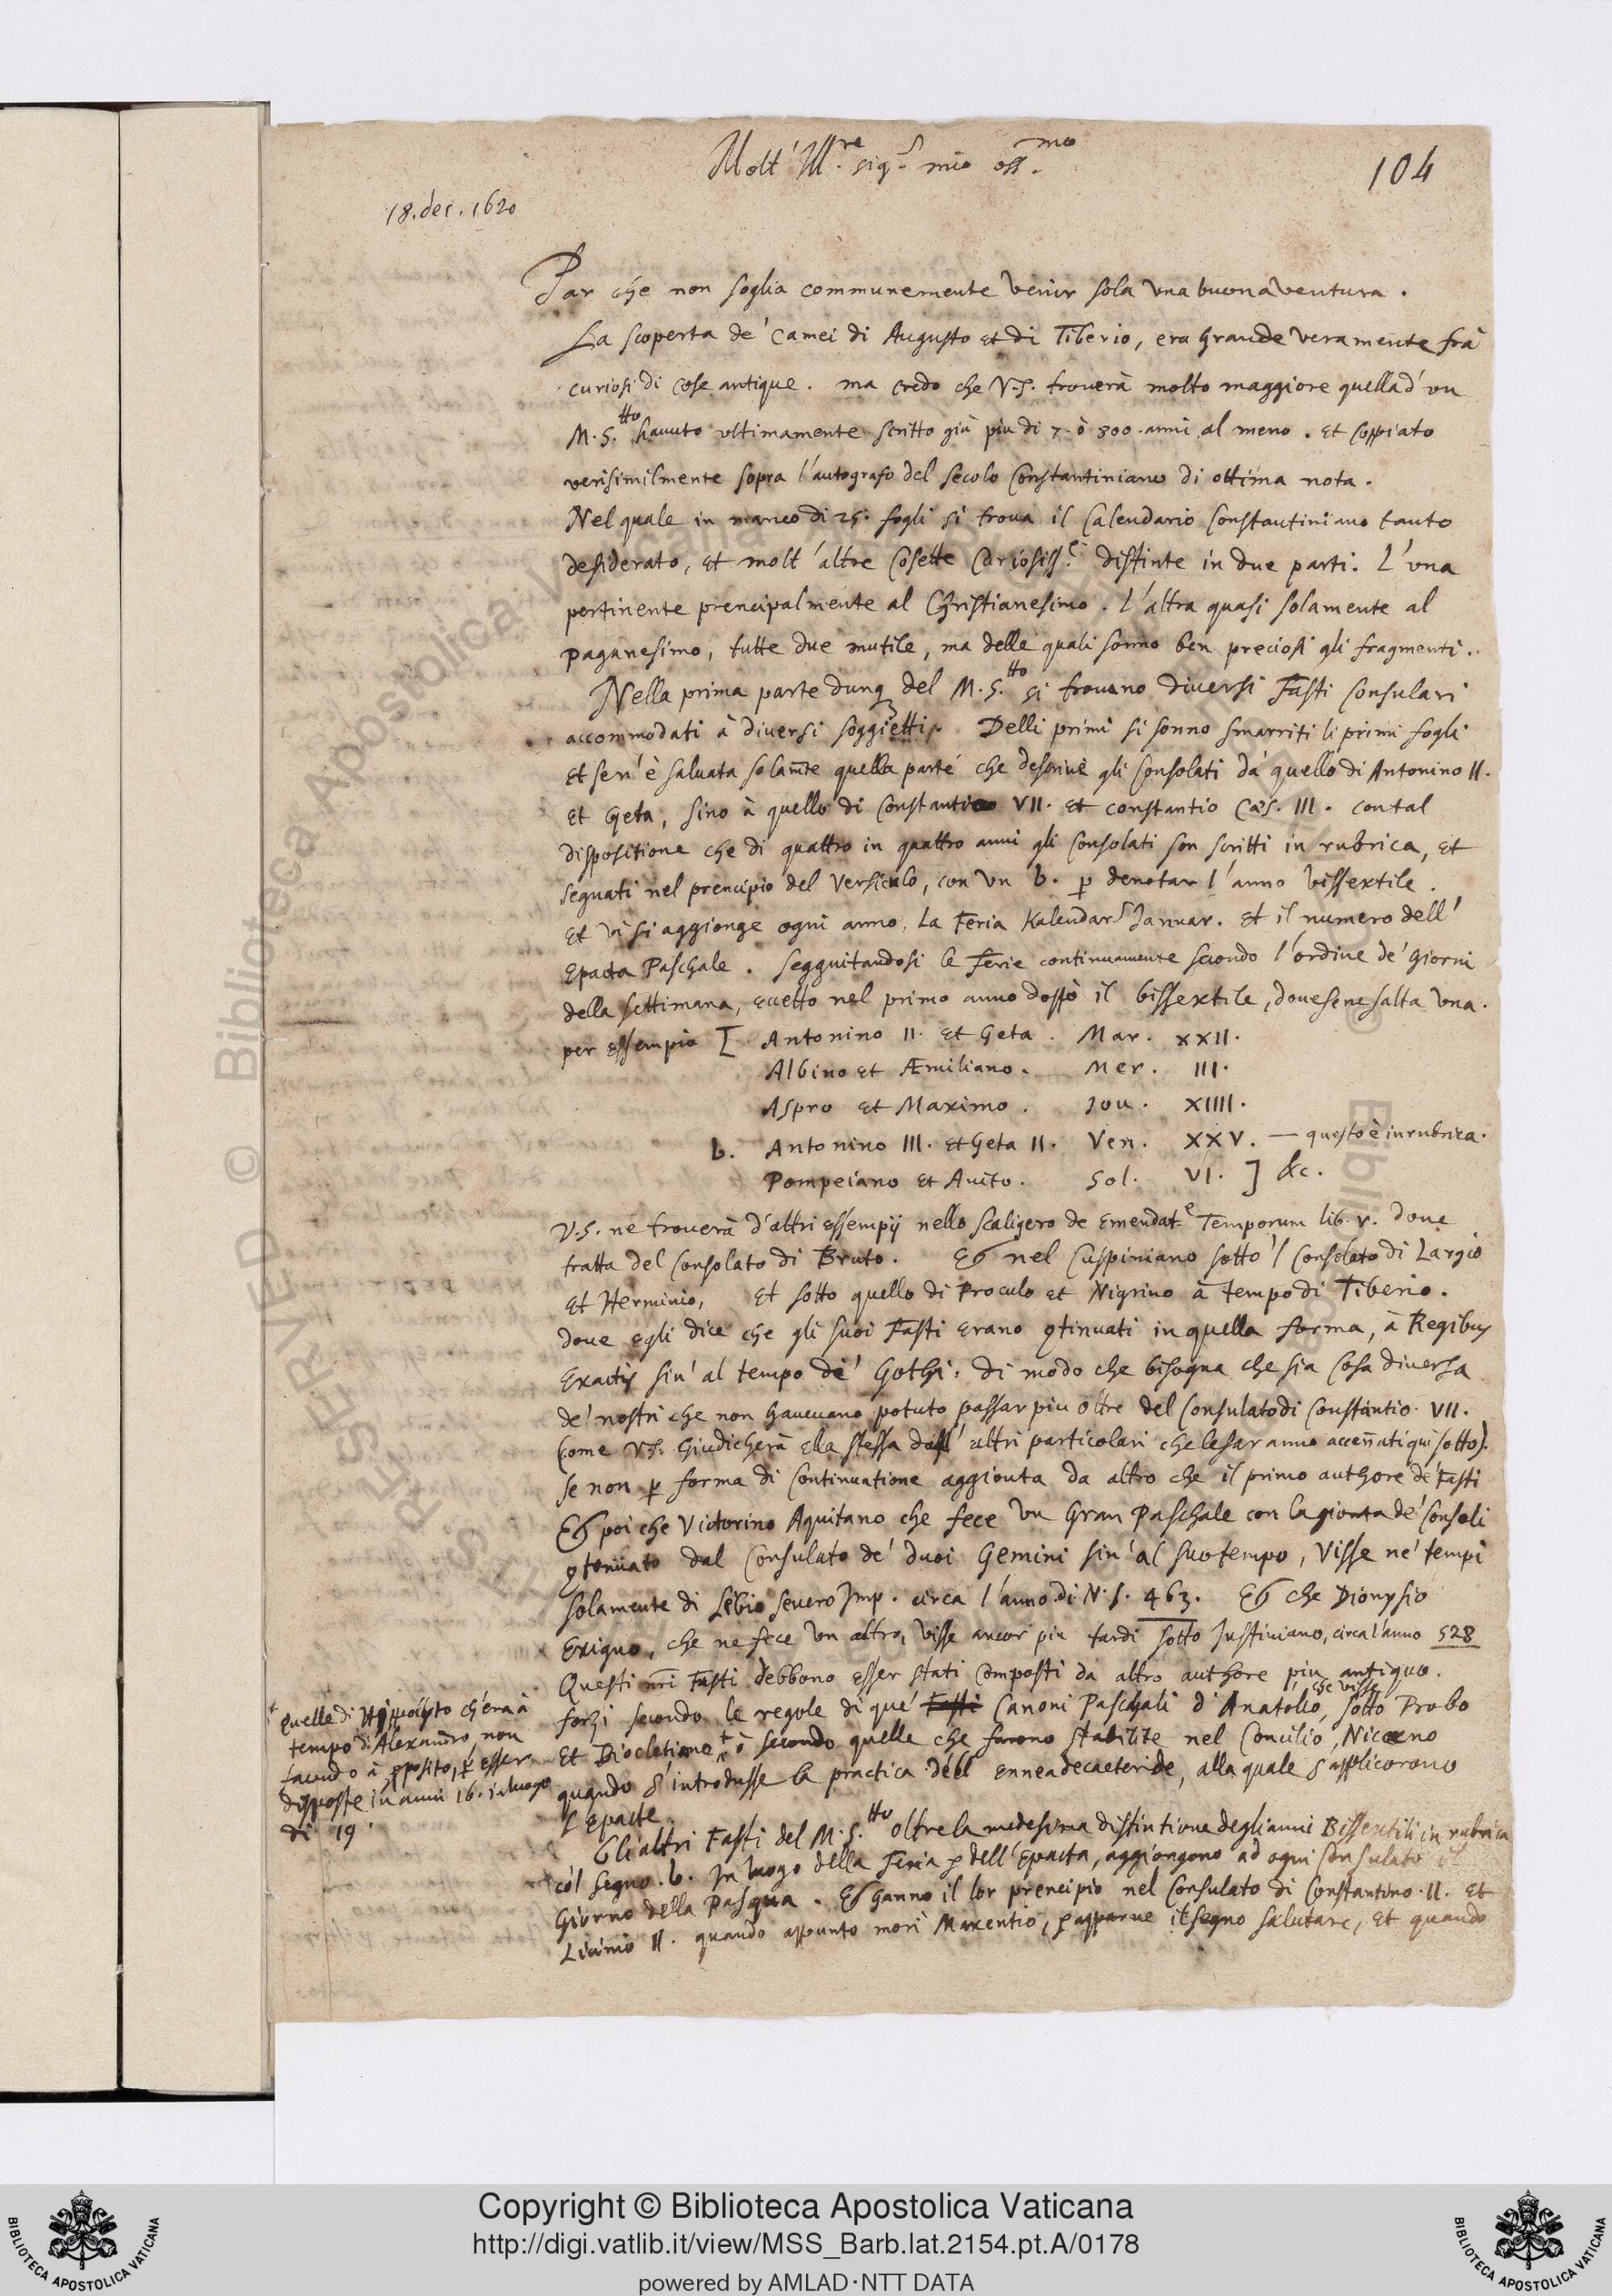 Molt' Ill.re sig.r mio oss.mo
104
18. dec. 1620
Par che non soglia communemente venir sola una buona ventura.
La scoperta de' Camei di Augusto et di Tiberio, era grande veramente fra
curiosi di cose antique. ma credo che V.S. trouerà molto maggiore quella d'un
M.S.tto hauuto ultimamente scritto già piu di 7. ò 800. anni al meno. et coppiato
verisimilmente sopra l'autografo del secolo Constantiniano di ottima nota.
Nel quale in manco di 25. fogli si trova il Calendario Constantiniano tanto
desiderato, et molt'altre Cosette Curiosiss.e distinte in due parti. L'una
pertinente prencipalmente al Christianesimo. L'altra quasi solamente al
paganesimo, tutte due mutile, ma delle quali sonno ben preciosi gli fragmenti.
Nella prima parte dunq del M.S.tto si trouano diversi Fasti Consulari
accommodati à diversi soggietti. Delli primi si sonno smarriti li primi fogli
et sen'è saluata solamte quella parte che descriue gli Consolati da quello di Antonino II.
et Geta, sino à quello di Constantio VII. et Constantio Cæs. III. con tal
dispositione che di quattro in quattro anni gli Consolati son scritti in rubrica, et
segnati nel prencipio del Versiculo, con un b. p denotar l'anno bissextile.
et vi si aggionge ogni anno. La Feria Kalendar Januar. et il numero dell'
Epacta Paschale. Seguitandosi le Ferie continuamente secondo l'ordine de' giorni
della settimana, eccetto nel primo anno doppò il bissextile, doue sene salta una.
per essempio [ Antonino II. et Geta. Mar. XXII.
Albino et Æmiliano. Mer. III.
Aspro et Maximo. Jou. XIIII.
b. Antonino III. et Geta II. Ven. XXV. — questo è in rubrica.
Pompeiano et Auito. Sol. VI. ] &c.
V.S. ne trouerà d'altri essempij nello Scaligero de Emendat.e Temporum lib. v. doue
tratta del Consolato di Bruto. Et nel Cuspiniano sotto'l Consolato di Largio
et Herminio, et sotto quello di Proculo et Nigrino à tempo di Tiberio.
doue egli dice che gli suoi Fasti erano 9tinuati in quella forma, à Regibus
exactis sin' al tempo de' Gothi. di modo che bisogna che sia Cosa diuersa
de' nostri che non haueuano potuto passar piu oltre del Consulato di Constantio. VII.
(come V.S. Giudicherà ella stessa dall' altri particolari che le saranno accennati qui sotto).
se non p forma di Continuatione aggionta da altro che il primo authore de' Fasti
Et poi che Victorino Aquitano che fece un Gran Paschale con la gionta de' Consoli
9tinuato dal Consulato de' duoi Gemini sin' al suo tempo, Visse ne' tempi
solamente di Libio Severo Imp. circa l'anno di N.S. 463. Et che Dionysio
Exiguo, che ne fece un altro, visse ancor piu tardi sotto Justiniano, circa l'anno 528
Questi nri Fasti debbono esser stati Composti da altro authore piu antiquo.
forzi secondo le regole di que' Fasti Canoni Paschali d'Anatolio, che visse sotto Probo
et Diocletiano + ò secondo quelle che furono stabilite nel Concilio Nicæno
quando s'introdusse la practica dell' enneadecaeteride, alla quale s'applicorono
l'epacte.
+ quelle di Hippolyto ch'era à
tempo di Alexandro, non
facendo à pposito, p esser
disposte in anni 16. in luogo
di 19.
Gli altri Fasti del M.S.tto oltre la medesima distintione degli anni Bissextili in rubrica
col segno .b. In luogo della Feria et dell'Epacta, aggiongono ad ogni Consulato il
Giorno della Pasqua. Et hanno il lor prencipio nel Consulato di Constantino. II. et
Licinio II. quando appunto morì Maxentio, et apparue il segno salutare, et quando
Copyright © Biblioteca Apostolica Vaticana
http://digi.vatlib.it/view/MSS_Barb.lat.2154.pt.A/0178
powered by AMLAD·NTT DATA
BIBLIOTECA APOSTOLICA VATICANA
BIBLIOTECA APOSTOLICA VATICANA